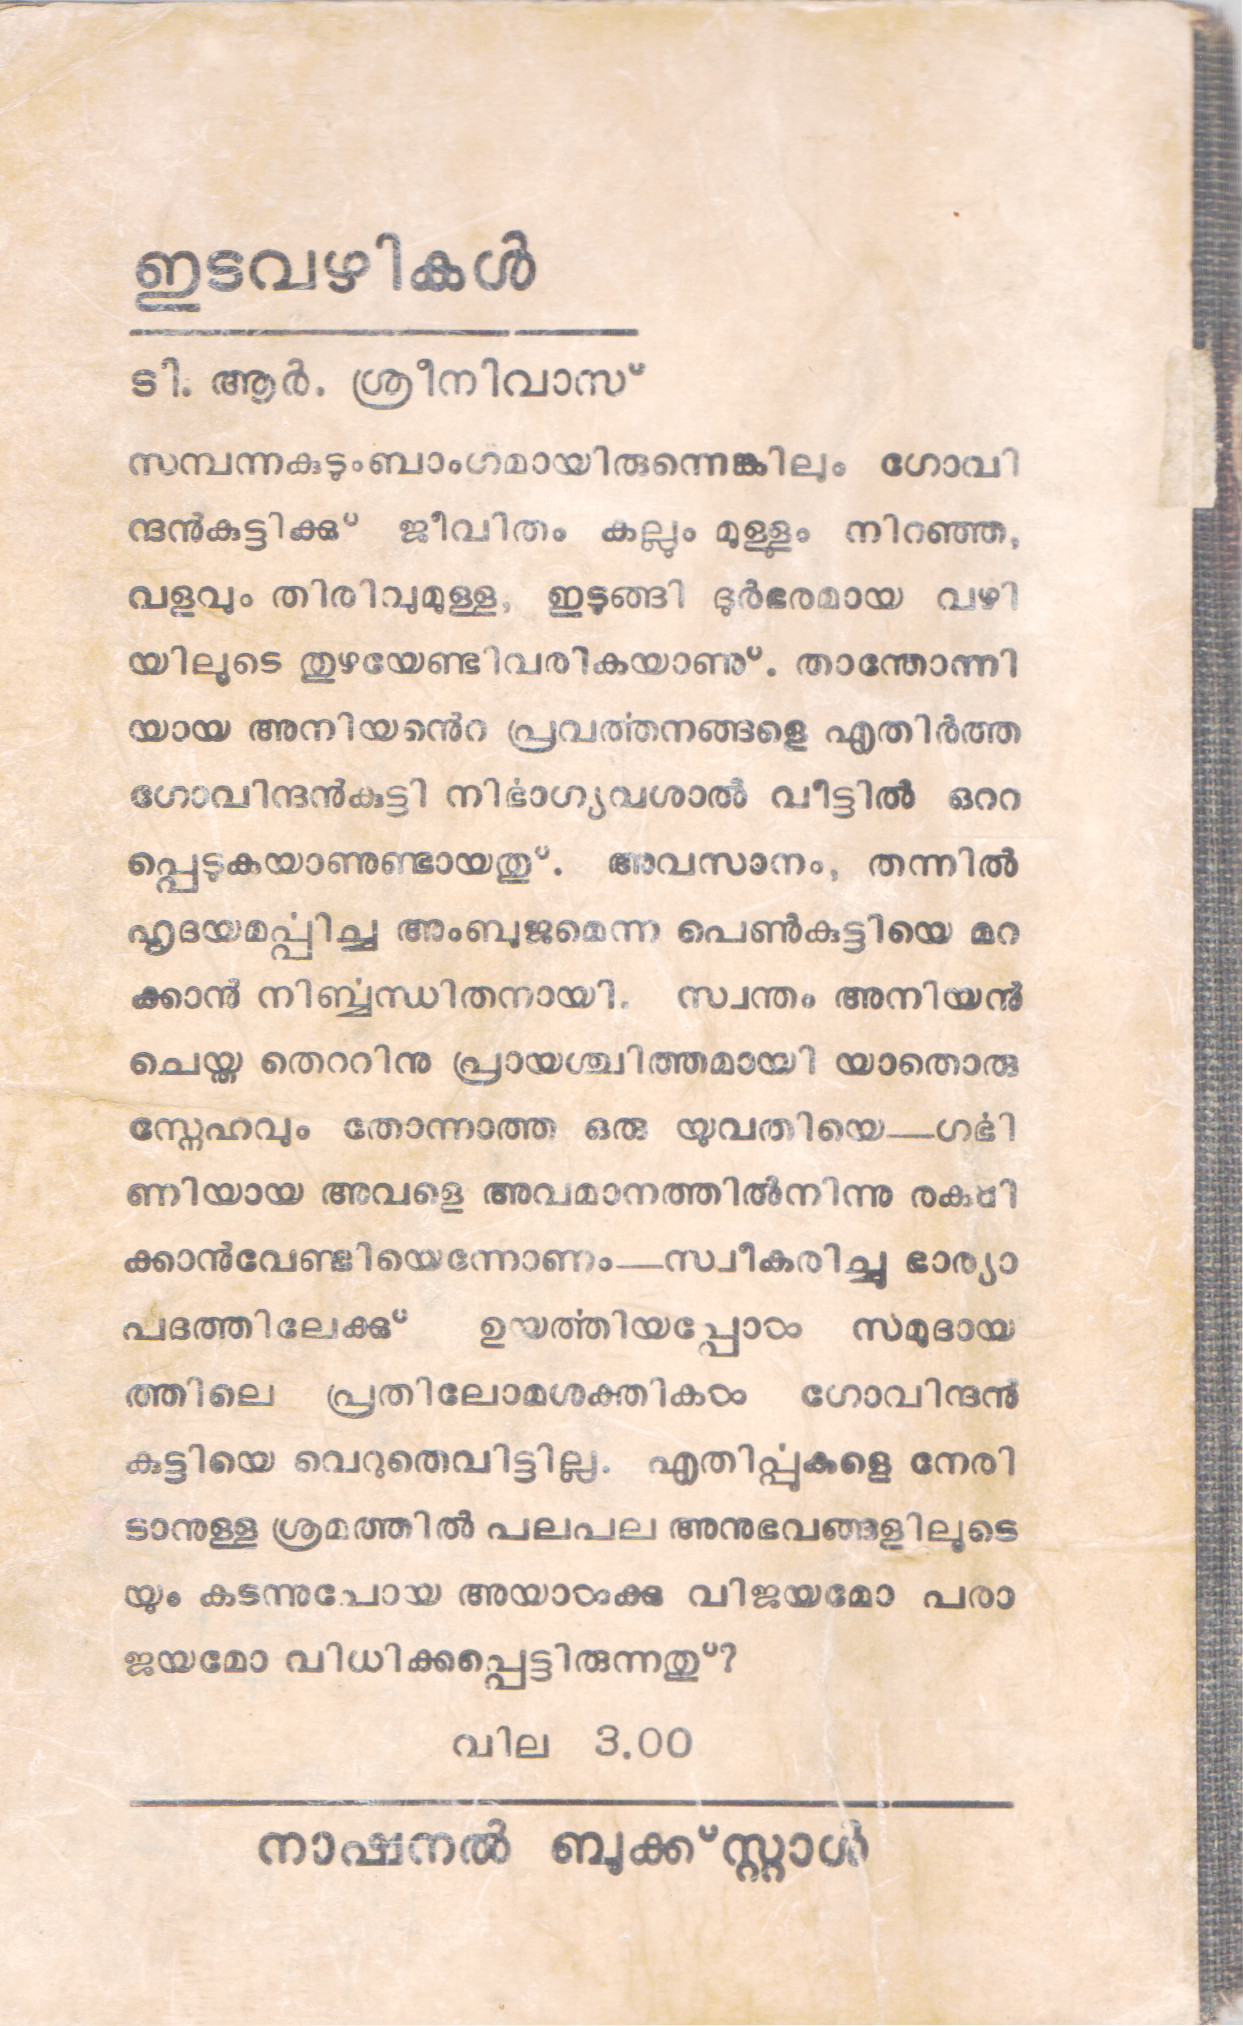 ഇടവഴികൾ
ടി. ആർ. ശ്രീനിവാസ്
സമ്പന്നകുടുംബാംഗമായിരുന്നെങ്കിലും ഗോവി
ന്ദൻകുട്ടിക്കു് ജീവിതം കല്ലും മുള്ളും നിറഞ്ഞ,
വളവും തിരിവുമുള്ള, ഇടുങ്ങി ദുർഭരമായ വഴി
യിലൂടെ തുഴയേണ്ടിവരികയാണു്. താന്തോന്നി
യായ അനിയന്റെ പ്രവൎത്തനങ്ങളെ എതിർത്ത
ഗോവിന്ദൻകുട്ടി നിൎഭാഗ്യവശാൽ വീട്ടിൽ ഒററ
പ്പെടുകയാണുണ്ടായതു്. അവസാനം, തന്നിൽ
ഹൃദയമൎപ്പിച്ച അംബുജമെന്ന പെൺകുട്ടിയെ മറ
ക്കാൻ നിൎബ്ബന്ധിതനായി. സ്വന്തം അനിയൻ
ചെയ്ത തെററിനു പ്രായശ്ചിത്തമായി യാതൊരു
സ്നേഹവും തോന്നാത്ത ഒരു യുവതിയെ—ഗൎഭി
ണിയായ അവളെ അവമാനത്തിൽനിന്നു രക്ഷി
ക്കാൻവേണ്ടിയെന്നോണം—സ്വീകരിച്ചു ഭാര്യാ
പദത്തിലേക്കു് ഉയൎത്തിയപ്പോൾ സമുദായ
ത്തിലെ പ്രതിലോമശക്തികൾ ഗോവിന്ദൻ
കുട്ടിയെ വെറുതെവിട്ടില്ല. എതിൎപ്പുകളെ നേരി
ടാനുള്ള ശ്രമത്തിൽ പലപല അനുഭവങ്ങളിലൂടെ
യും കടന്നുപോയ അയാൾക്കു വിജയമോ പരാ
ജയമോ വിധിക്കപ്പെട്ടിരുന്നതു്?
വില 3.00
നാഷനൽ ബുക്ക്സ്റ്റാൾ